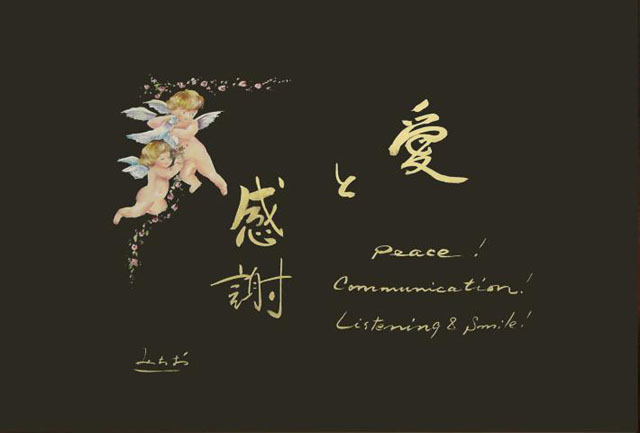 愛
と
感謝
Peace!
Communication!
Listening & Smile!